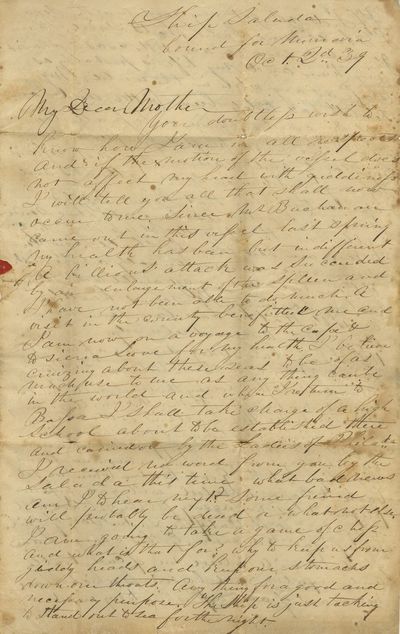 Ship Saluda
bound for Monrovia
Oct. 2d 39
My Dear Mother
You doubtless wish to
know how I am in all respects
and if the motion of the vessel does
not affect my head with giddiness
I will tell you all that shall now
occur to me. Since Mr Buchanan
came out in this vessel last Spring
my health has been but indifferent
A billious attack was succeeded
by an enlargement of the Spleen and
I have not been able to do much. A
visit in the county benefitted me and
I am now on a voyage to the Cape &
to Sierra Leone for my health. I
cruizing about these seas to be of as
much use to me as any thing can be
in the world and when I return to
Bassa I shall take charge of a high
School about to be established there
and carried on by the Ladies of
I received no word from you by the
Saluda this time what bad news
am I to hear next some friend
will probably be dead or what not else.
I am going to take a game of
and what is that for? why to keep us from
giddy heads and keep our stomachs
down our throats. Any thing for a good and
necessary purpose. The Ship is just tacking
to stand out to sea for the night.